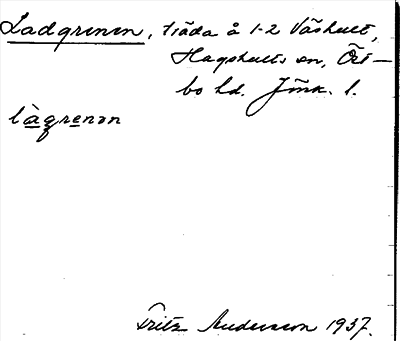 Ladgrenen, träda å 1-2 Våshult,
Hagshults sn, Öst-
bo hd. Jönk. l.
làgrenən
Fritz Anderson 1937.